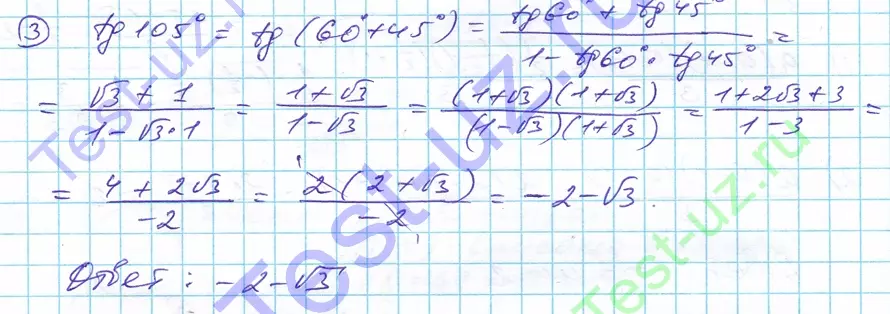 ③ tg 105° = tg (60° + 45°) = (tg 60° + tg 45°) / (1 - tg 60° · tg 45°) =
= (√3 + 1) / (1 - √3 · 1) = (1 + √3) / (1 - √3) = ((1 + √3)(1 + √3)) / ((1 - √3)(1 + √3)) = (1 + 2√3 + 3) / (1 - 3) =
= (4 + 2√3) / (-2) = (2(2 + √3)) / (-2) = -2 - √3.
Ответ: -2 - √3
Test-uz.ru
Test-uz.ru
Test-uz.ru